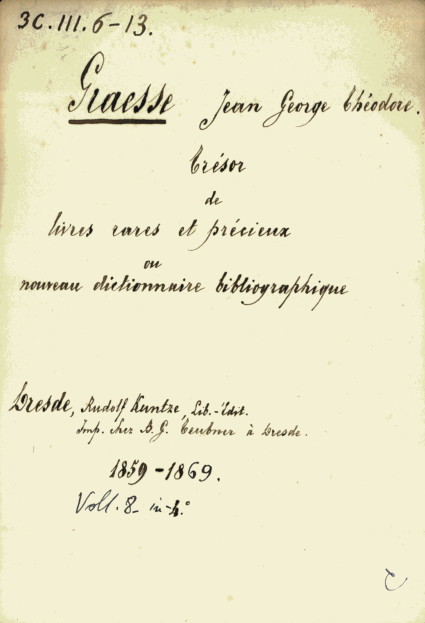 3C.III.6-13.
Graesse Jean George Théodore.
Trésor
de
livres rares et précieux
ou
nouveau dictionnaire bibliographique
Dresde, Rudolf Kuntze, Lib.-Édit.
Imp. chez B. G. Teubner à Dresde.
1859-1869.
Voll. 8 in-4°